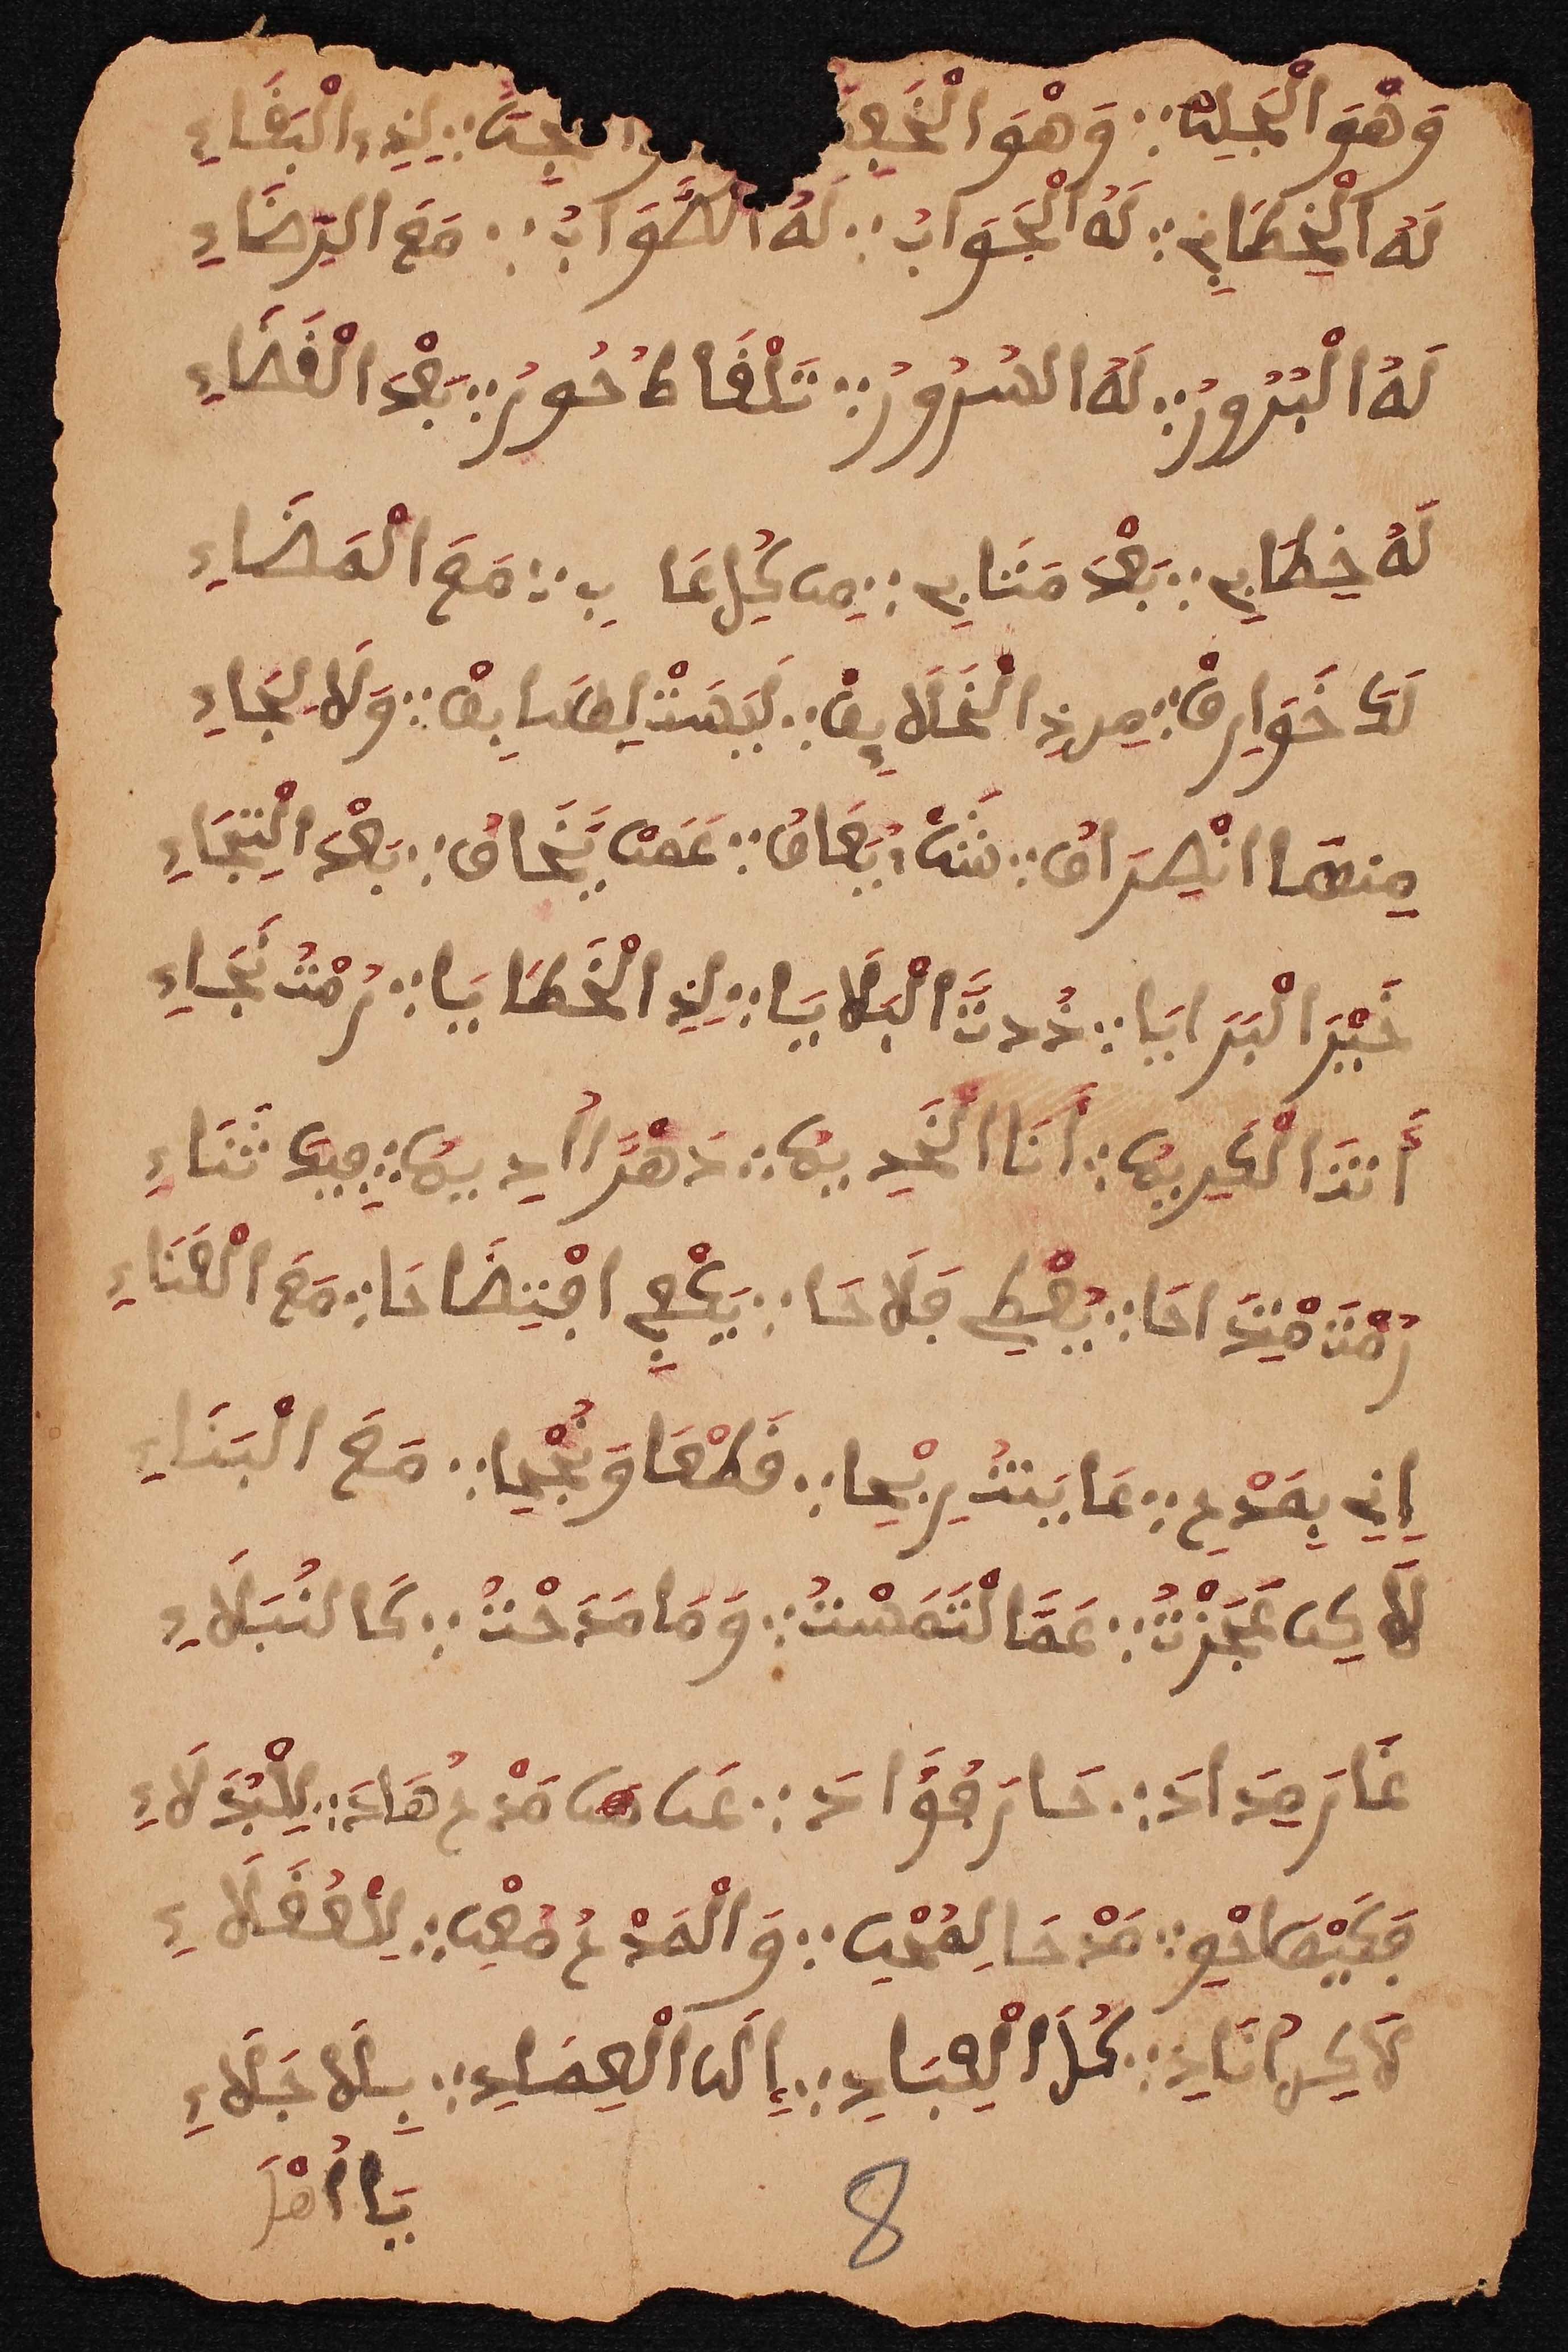 وَهْوَ الْجَلِيلْ ∴ وَهْوَ الْخَ ∴ لِذِ الْبَقَاءِ
لَهُ الْخِطَابِ ∴ لَهُ الْجَوَابُ ∴ لَهُ الصَّوَابُ ∴ مَعَ الرِّضَاءِ
لَهُ الْبُرُورُ ∴ لَهُ السُرُورُ ∴ تَلْقَاهُ حُورُ ∴ بَعْدَ الْقَضَاءِ
لَهُ خِطَابِ ∴ بَعْدَ مَتَابِ ∴ مِن كُلِ عَابِ ∴ مَعَ الْمَضَاءِ
لَهُ خَوَارِقْ ∴ مِن ذِ الْخَلَايِقْ ∴ لَيْسَتْ لِصَايِقْ ∴ وَلَا لِجَاءِ
مِنهَا انْصِرَافُ ∴ شَتَّ يُعَافُ ∴ عَمَّن يَّخَافُ ∴ بَعْدَ الْتِجَاءِ
خَيْرَ الْبَرَايَا ∴ ذُدتَّ الْبَلَايَا ∴ لِذِ الْخَطَايَا ∴ رُمْتُ نَجَاءِ
أَنتَ الْكَرِيمُ ∴ أَنَا الْخَدِيمُ ∴ دَهْرًا اُدِيمُ ∴ فِيكَ ثَنَاءِ
رُمْتَ مْتِدَاحَا ∴ يُعْطِ فَلَاحَا ∴ يَكْفِ افْتِضَاحَا ∴ مَعَ الْفَنَاءِ
اِنِ بِمَدْحِ ∴ عَايَنتُ رِبْحَا ∴ قَطْعَا وَنُجْحَا ∴ مَعَ الْبَنَاءِ
لَاكِن عَجَزْتُ ∴ عَمَّا لْتَمَسْتُ ∴ وَمَا مَدَحْتُ ∴ كَا لنُبَلَاءِ
غَارَ مِدَادَ ∴ حَارَ فُؤَادَ ∴ عَن مَدْحُ هَادَ ∴ لِلْبُدَلَاءِ
فَكَيْفَ اَحْوِ ∴ مَدْحَا لِمُمْحِ ∴ وَالْمَدْحُ مُعْيِ ∴ لِلْعُقَلَاءِ
لَاكِن اُنَادِ ∴ كُلَ الْعِبَادِ ∴ إِلَى الْعِمَادِ ∴ بِلَا جَلَاءِ
يَا اُهْلَ
8